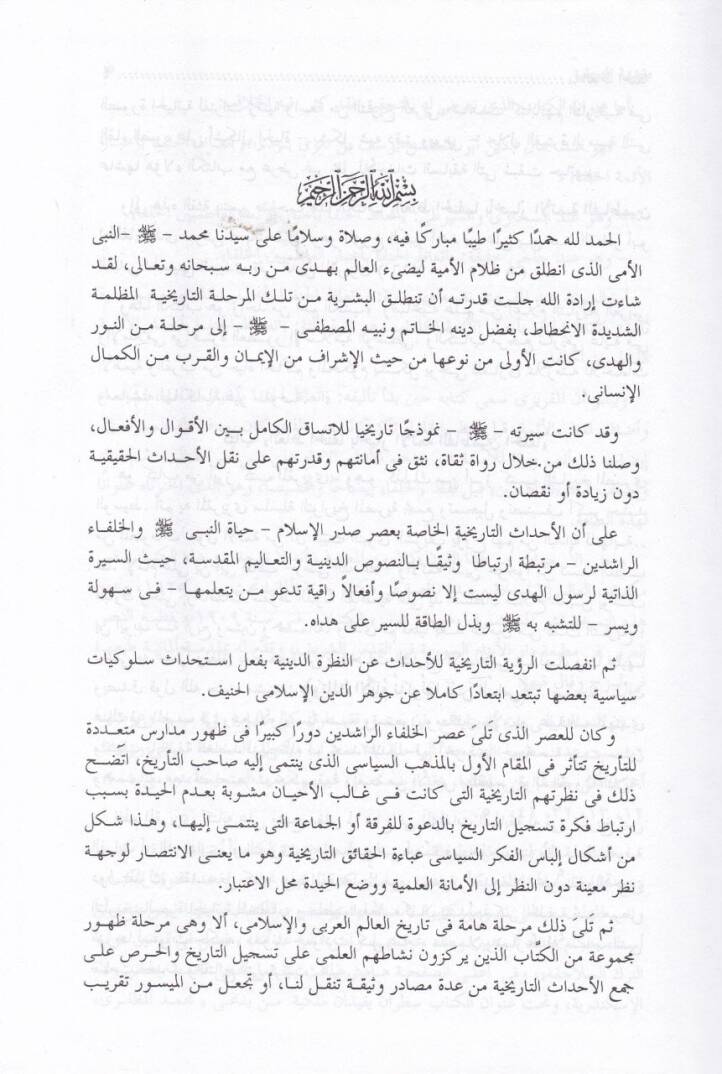 بسم الله الرحمن الرحيم
الحمد لله حمدًا كثيرًا طيبًا مباركًا فيه، وصلاة وسلامًا على سيدنا محمد - ﷺ - النبى
الأمى الذى انطلق من ظلام الأمية ليضىء العالم بهدى من ربه سبحانه وتعالى، لقد
شاءت إرادة الله جلت قدرته أن تنطلق البشرية من تلك المرحلة التاريخية المظلمة
الشديدة الانحطاط، بفضل دينه الخاتم ونبيه المصطفى - ﷺ - إلى مرحلة من النور
والهدى، كانت الأولى من نوعها من حيث الإشراف من الإيمان والقرب من الكمال
الإنسانى.
وقد كانت سيرته - ﷺ - نموذجًا تاريخيا للاتساق الكامل بين الأقوال والأفعال،
وصلنا ذلك من خلال رواة ثقاة، نثق فى أمانتهم وقدرتهم على نقل الأحداث الحقيقية
دون زيادة أو نقصان.
على أن الأحداث التاريخية الخاصة بعصر صدر الإسلام - حياة النبى ﷺ والخلفاء
الراشدين - مرتبطة ارتباطا وثيقًا بالنصوص الدينية والتعاليم المقدسة، حيث السيرة
الذاتية لرسول الهدى ليست إلا نصوصًا وأفعالاً راقية تدعو من يتعلمها - فى سهولة
ويسر - للتشبه به ﷺ وبذل الطاقة للسير على هداه.
ثم انفصلت الرؤية التاريخية للأحداث عن النظرة الدينية بفعل استحداث سلوكيات
سياسية بعضها تبتعد ابتعادًا كاملا عن جوهر الدين الإسلامى الحنيف.
وكان للعصر الذى تلىَ عصر الخلفاء الراشدين دورًا كبيرًا فى ظهور مدارس متعددة
للتأريخ تتأثر فى المقام الأول بالمذهب السياسى الذى ينتمى إليه صاحب التأريخ، اتَضح
ذلك فى نظرتهم التاريخية التى كانت فى غالب الأحيان مشوبة بعدم الحيدة بسبب
ارتباط فكرة تسجيل التاريخ بالدعوة للفرقة أو الجماعة التى ينتمى إليها، وهذا شكل
من أشكال إلباس الفكر السياسى عباءة الحقائق التاريخية وهو ما يعنى الانتصار لوجهة
نظر معينة دون النظر إلى الأمانة العلمية ووضع الحيدة محل الاعتبار.
ثم تَلىَ ذلك مرحلة هامة فى تاريخ العالم العربى والإسلامى، ألا وهى مرحلة ظهور
مجموعة من الكتَّاب الذين يركزون نشاطهم العلمى على تسجيل التاريخ والحرص على
جمع الأحداث التاريخية من عدة مصادر وثيقة تنقل لنا، أو تجعل من الميسور تقريب